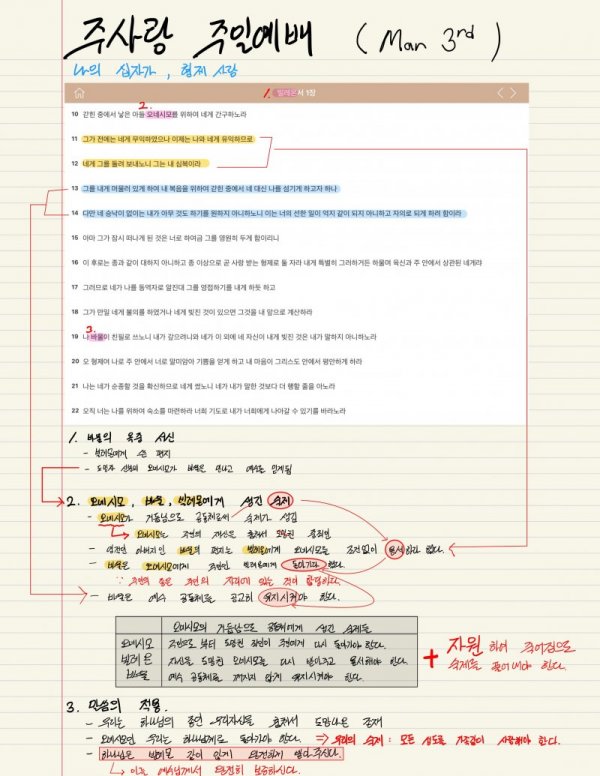 주사랑 주일예배 (Mar 3rd)
나의 십자가, 형제 사랑
1. 빌레몬서 1장
2.
10 갇힌 중에서 낳은 아들 오네시모를 위하여 네게 간구하노라
11 그가 전에는 네게 무익하였으나 이제는 나와 네게 유익하므로
12 네게 그를 돌려 보내노니 그는 내 심복이라
13 그를 내게 머물러 있게 하여 내 복음을 위하여 갇힌 중에서 네 대신 나를 섬기게 하고자 하나
14 다만 네 승낙이 없이는 내가 아무 것도 하기를 원하지 아니하노니 이는 너의 선한 일이 억지 같이 되지 아니하고 자의로 되게 하려 함이라
15 아마 그가 잠시 떠나게 된 것은 너로 하여금 그를 영원히 두게 함이리니
16 이 후로는 종과 같이 대하지 아니하고 종 이상으로 곧 사랑 받는 형제로 둘 자라 내게 특별히 그러하거든 하물며 육신과 주 안에서 상관된 네게랴
17 그러므로 네가 나를 동역자로 알진대 그를 영접하기를 내게 하듯 하고
18 그가 만일 네게 불의를 하였거나 네게 빚진 것이 있으면 그것을 내 앞으로 계산하라
3.
19 나 바울이 친필로 쓰노니 내가 갚으려니와 네가 이 외에 네 자신이 내게 빚진 것은 내가 말하지 아니하노라
20 오 형제여 나로 주 안에서 너로 말미암아 기쁨을 얻게 하고 내 마음이 그리스도 안에서 평안하게 하라
21 나는 네가 순종할 것을 확신하므로 네게 썼노니 네가 내가 말한 것보다 더 행할 줄을 아노라
22 오직 너는 나를 위하여 숙소를 마련하라 너희 기도로 내가 너희에게 나아갈 수 있기를 바라노라
1. 바울의 옥중 서신
- 빌레몬에게 쓴 편지
- 도망자 신분의 오네시모가 바울을 만나고 예수를 믿게됨
2. 오네시모, 바울, 빌레몬에게 생긴 숙제
- 오네시모가 거듭남으로 공동체에 숙제가 생김
오네시모는 주인의 재산을 훔쳐서 도망친
- 영적인 아버지인 바울의 편지는 빌레몬에게 오네시모를 조건없이 용서하라 했다.
- 바울은 오네시모에게 주인인 빌레몬에게 돌아가라 했다.
∵ 주인의 종은 주인의 자리에 있는 것이 합당하다.
- 바울은 예수 공동체를 공고히 유지시켜야 한다.
오네시모의 거듭남으로 공동체에게 생긴 숙제들
오네시모 주인으로부터 도망친 죄인이 주인에게 다시 돌아가야 한다.
빌레몬 자신을 도망친 오네시모를 다시 받아주고 용서해야 한다.
바울 예수 공동체를 깨지지 않게 유지시켜야 한다.
+ 자원하여 주어짐으로
숙제를 풀어내야 한다.
3. 말씀의 적용
- 우리는 하나님의 종인 우리자신을 훔쳐서 도망나온 존재
- 오네시모인 우리는 하나님께로 돌아가야 한다. ⇒ 우리의 숙제 : 모든 성도를 가족같이 사랑해야 한다.
- 하나님은 빌레몬 같이 있게 온전하게 받아주신다.
이는 예수님께서 온전히 보증하신다.